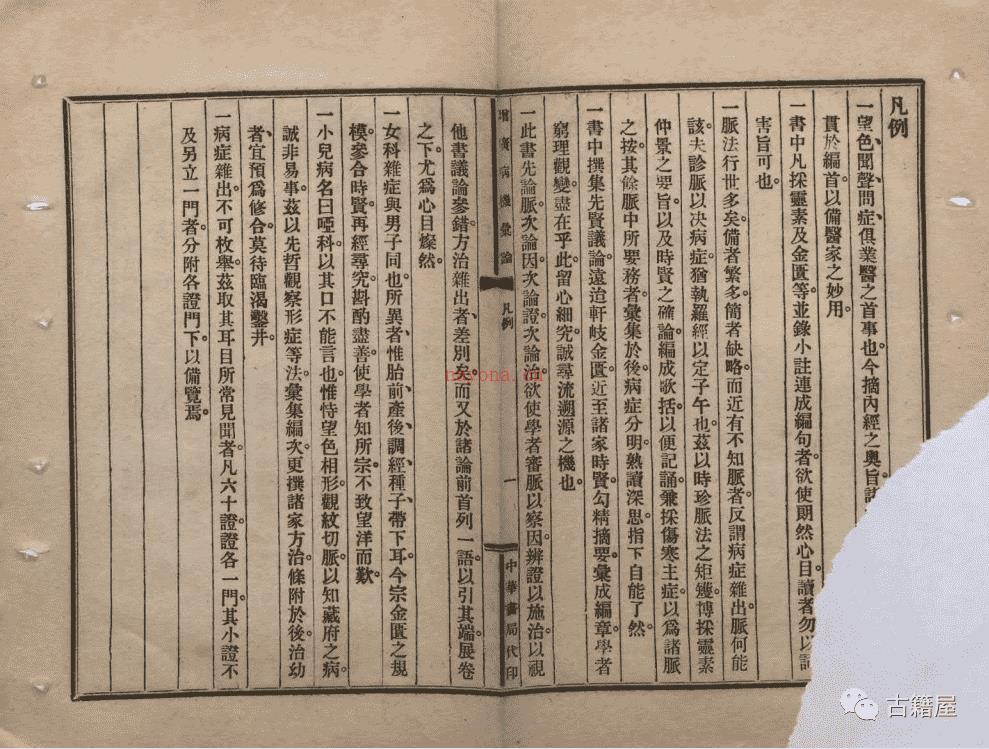 凡例
一望色、聞聲、問症俱業醫之首事也。今摘內經之奧旨
貫於編首。以備醫家之妙用。
一書中凡採靈素及金匱等並錄小註連成編句者。欲使瞭然心目。讀者勿以
害旨可也。
一脈法行世多矣。備者繁多。簡者缺略。而近有不知脈者。反謂病症雜出。脈何能
該。夫診脈以决病症。猶執羅經以定子午也。茲以時珍脈法之矩矱。博採靈素
仲景之要旨。以及時賢之確論。編成歌括。以便記誦。兼採傷寒主症。以爲諸脈
之按。其餘脈中所要務者。彙集於後。病症分明。熟讀深思。指下自能了然。
一書中撰集先賢議論。遠迨軒岐金匱。近至諸家時賢。勾精摘要。彙成編章。學者
窮理觀變。盡在乎此。留心細究。誠尋流遡源之機也。
一此書先論脈。次論因。次論證。次論治。欲使學者審脈以察因。辨證以施治。以視
他書議論參錯。方治雜出者。差別矣。而又於諸論前首列一語。以引其端。展卷
之下。尤爲心目燦然。
一女科雜症與男子同也。所異者。惟胎前、產後、調經、種子、帶下耳。今宗金匱之規
模。參合時賢。再經尋究。斟酌盡善。使學者知所宗。不致望洋而歎。
一小兒病名曰啞科。以其口不能言也。惟恃望色相形。觀紋切脈。以知藏府之病。
誠非易事。茲以先哲觀察形症等法。彙集編次。更撰諸家方治。條附於後。治幼
者、宜預爲修合。莫待臨渴鑿井。
一病症雜出。不可枚舉。茲取其耳目所常見聞者。凡六十證。證各一門。其小證不
及另立一門者。分附各證門下。以備覽焉。
增廣病機彙論
凡例
一
中華書局代印
古籍屋